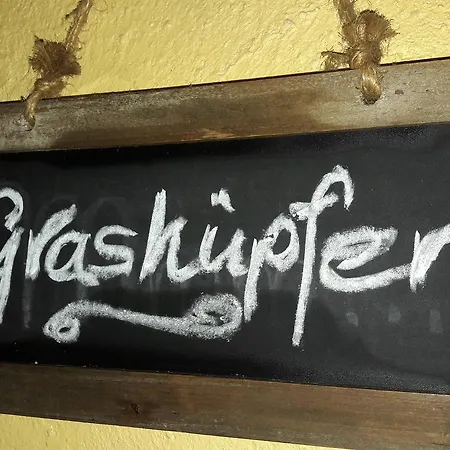 Grashüpfer